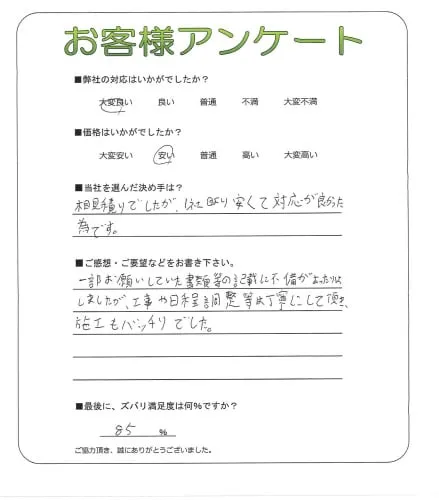 お客様アンケート
■弊社の対応はいかがでしたか？
大変良い 良い 普通 不満 大変不満
■価格はいかがでしたか？
大変安い 安い 普通 高い 大変高い
■当社を選んだ決め手は？
相見積りでしたが、他社より安くて対応が良かった
為です。
■ご感想・ご要望などをお書き下さい。
一部お願いしていた書類等の記載に不備があったり
しましたが、工事や日程調整等は丁寧にして頂き、
施工もバッチリでした。
■最後に、ズバリ満足度は何％ですか？
85 ％
ご協力頂き、誠にありがとうございました。